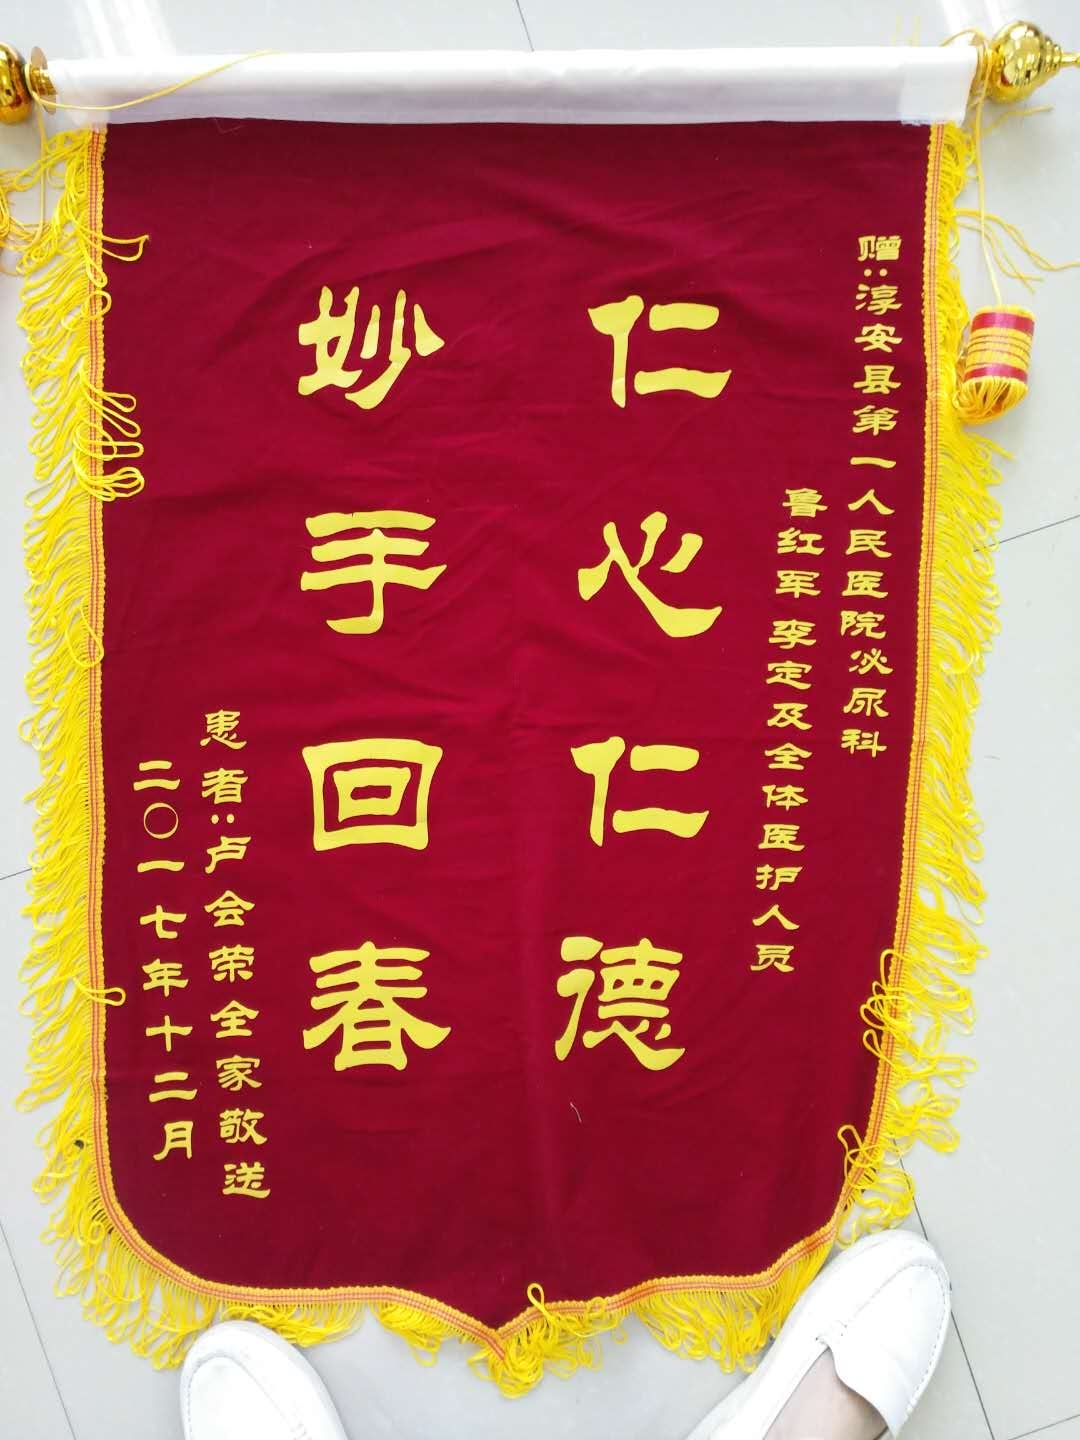 赠:淳安县第一人民医院泌尿科
鲁红军 李定及全体医护人员
仁心仁德
妙手回春
患者:卢会荣全家敬送
二〇一七年十二月